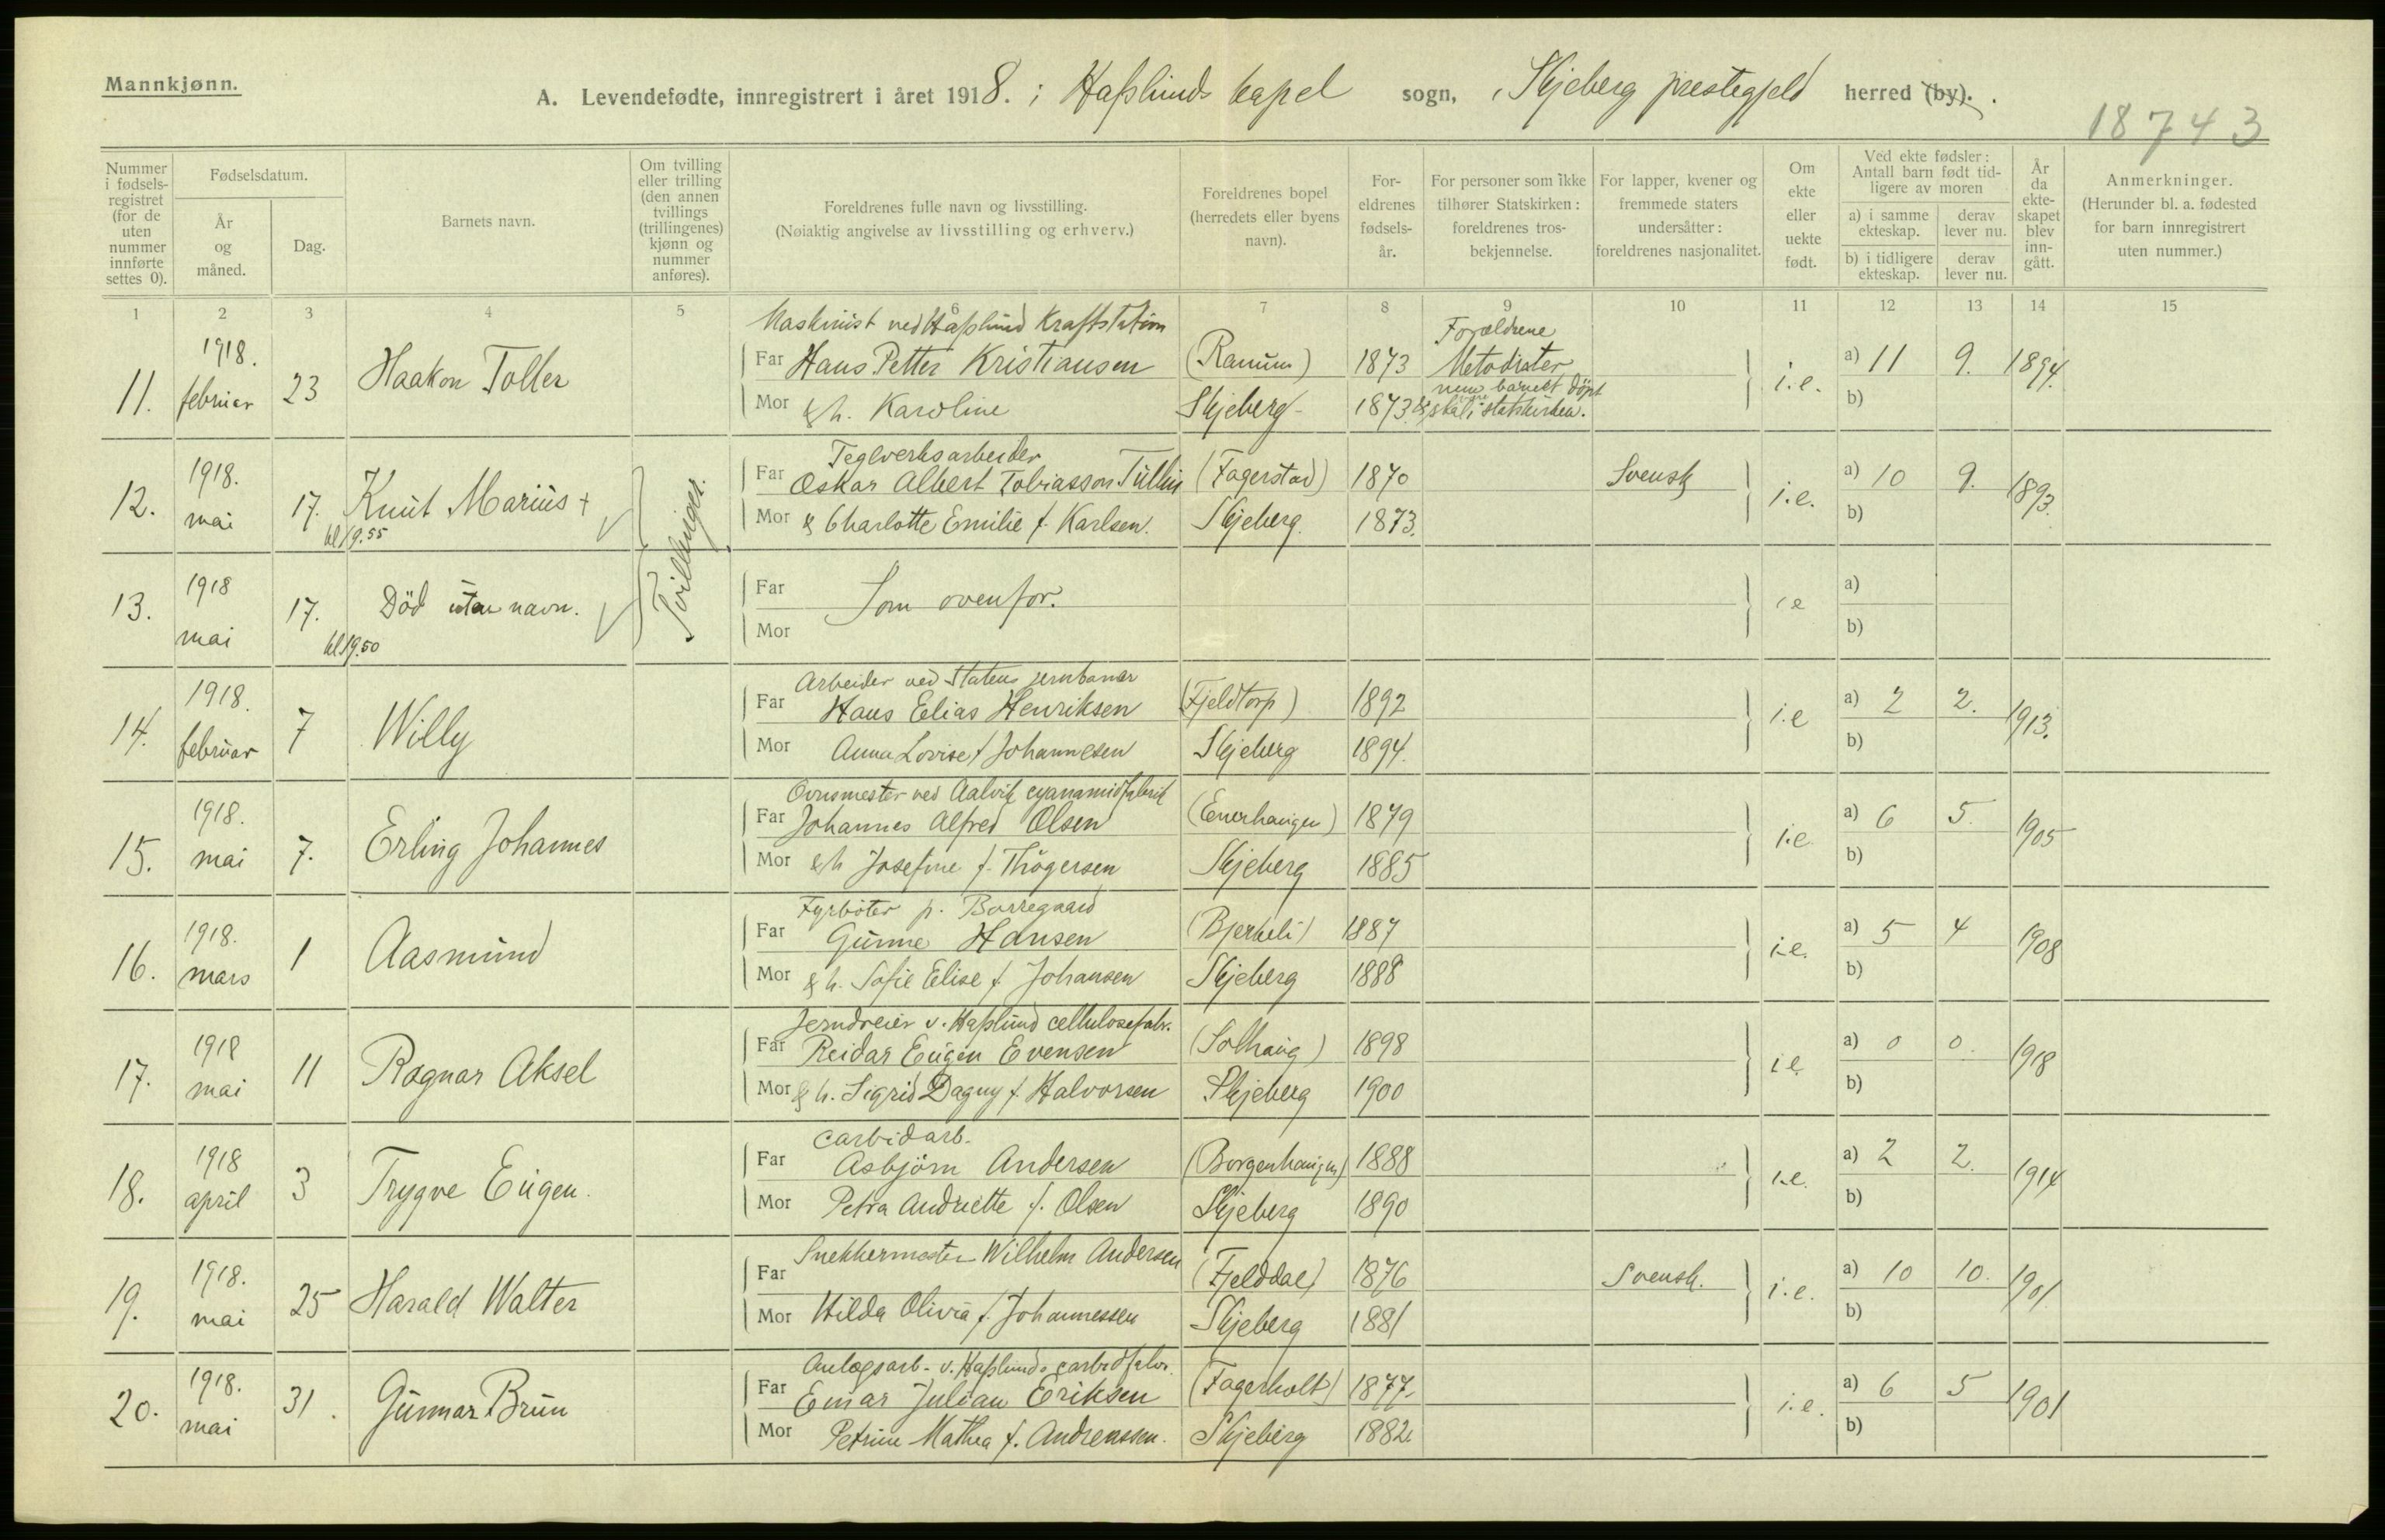 Mannkjønn.
A. Levendefødte, innregistrert i året 1918. i Hafslunds kapel sogn, i Skjeberg prestegjeld herred (by).
18743
Nummer i fødselsregistret (for de uten nummer innførte settes 0).
Fødselsdatum.
År og måned.
Dag.
Barnets navn.
Om tvilling eller trilling (den annen tvillings (trillingenes) kjønn og nummer anføres).
Foreldrenes fulle navn og livsstilling.
(Nøiaktig angivelse av livsstilling og erhverv.)
Foreldrenes bopel (herredets eller byens navn).
Foreldrenes fødselsår.
For personer som ikke tilhører Statskirken: foreldrenes trosbekjennelse.
For lapper, kvener og fremmede staters undersåtter: foreldrenes nasjonalitet.
Om ekte eller uekte født.
Ved ekte fødsler: Antall barn født tidligere av moren
a) i samme ekteskap.
derav lever nu.
b) i tidligere ekteskap.
derav lever nu.
År da ekteskapet blev inngått.
Anmerkninger.
(Herunder bl. a. fødested for barn innregistrert uten nummer.)
1 2 3 4 5 6 7 8 9 10 11 12 13 14 15
Maskinist ved Hafslund Kraftstation
Forældrene
11. 1918. februar 23 Haakon Toller Far Hans Petter Kristiansen (Ranum) 1873 Metodister i.e. a) 11 9. 1894.
men barnet døpt
Mor & h. Karoline Skjeberg 1873. i statskirken. b)
Teglverksarbeider
12. 1918. mai 17. kl 19.55 Knut Marius + Tvillinger. Far Oskar Albert Tobiasson Tüllin (Fagerstad) 1870 Svensk i.e. a) 10 9. 1893.
Mor & Charlotte Emilie f. Karlsen. Skjeberg 1873. b)
13. 1918 mai 17. kl 19.50 Död uten navn. Far Som ovenfor. i e a)
Mor b)
Arbeider ved Statens jernbaner
14. 1918. februar 7 Willy Far Hans Elias Henriksen (Fjeldtorp) 1892 i.e a) 2 2. 1913.
Mor Anna Lovise f Johannesen Skjeberg 1894. b)
Ovnsmester ved Aalvik cyanamidfabrik
15. 1918. mai 7. Erling Johannes Far Johannes Alfred Olsen (Enerhaugen) 1879 i.e. a) 6 5. 1905
Mor & h Josefine f. Thögersen Skjeberg 1885 b)
Fyrböter p. Borregaard
16. 1918. mars 1 Aasmund Far Gunne Hansen (Bjerkeli) 1887 i.e. a) 5 4 1908
Mor & h. Sofie Elise f. Johansen Skjeberg 1888 b)
Jerndreier v. Hafslund cellulosefabr.
17. 1918 mai 11 Ragnar Aksel Far Reidar Eugen Evensen (Solhaug) 1898 i e a) 0 0. 1918
Mor & h. Sigrid Dagny f. Halvorsen Skjeberg 1900 b)
Carbidarb.
18. 1918 april 3 Trygve Eugen. Far Asbjörn Andersen (Borgenhaugen) 1888 i.e. a) 2 2. 1914
Mor Petra Andriette f. Olsen Skjeberg 1890 b)
19. 1918. mai 25 Harald Walter Far Snekkermester Wilhelm Andersen (Fjelddal) 1876 Svensk. i.e. a) 10 10. 1901
Mor Hilda Olivia f. Johannessen Skjeberg 1881 b)
Anlegsarb. v. Hafslunds carbidfabr.
20. 1918. mai 31. Gunnar Brun Far Einar Julian Eriksen (Fagerholt) 1877. i.e. a) 6 5 1901
Mor Petrine Mathea f. Andreassen. Skjeberg 1882. b)